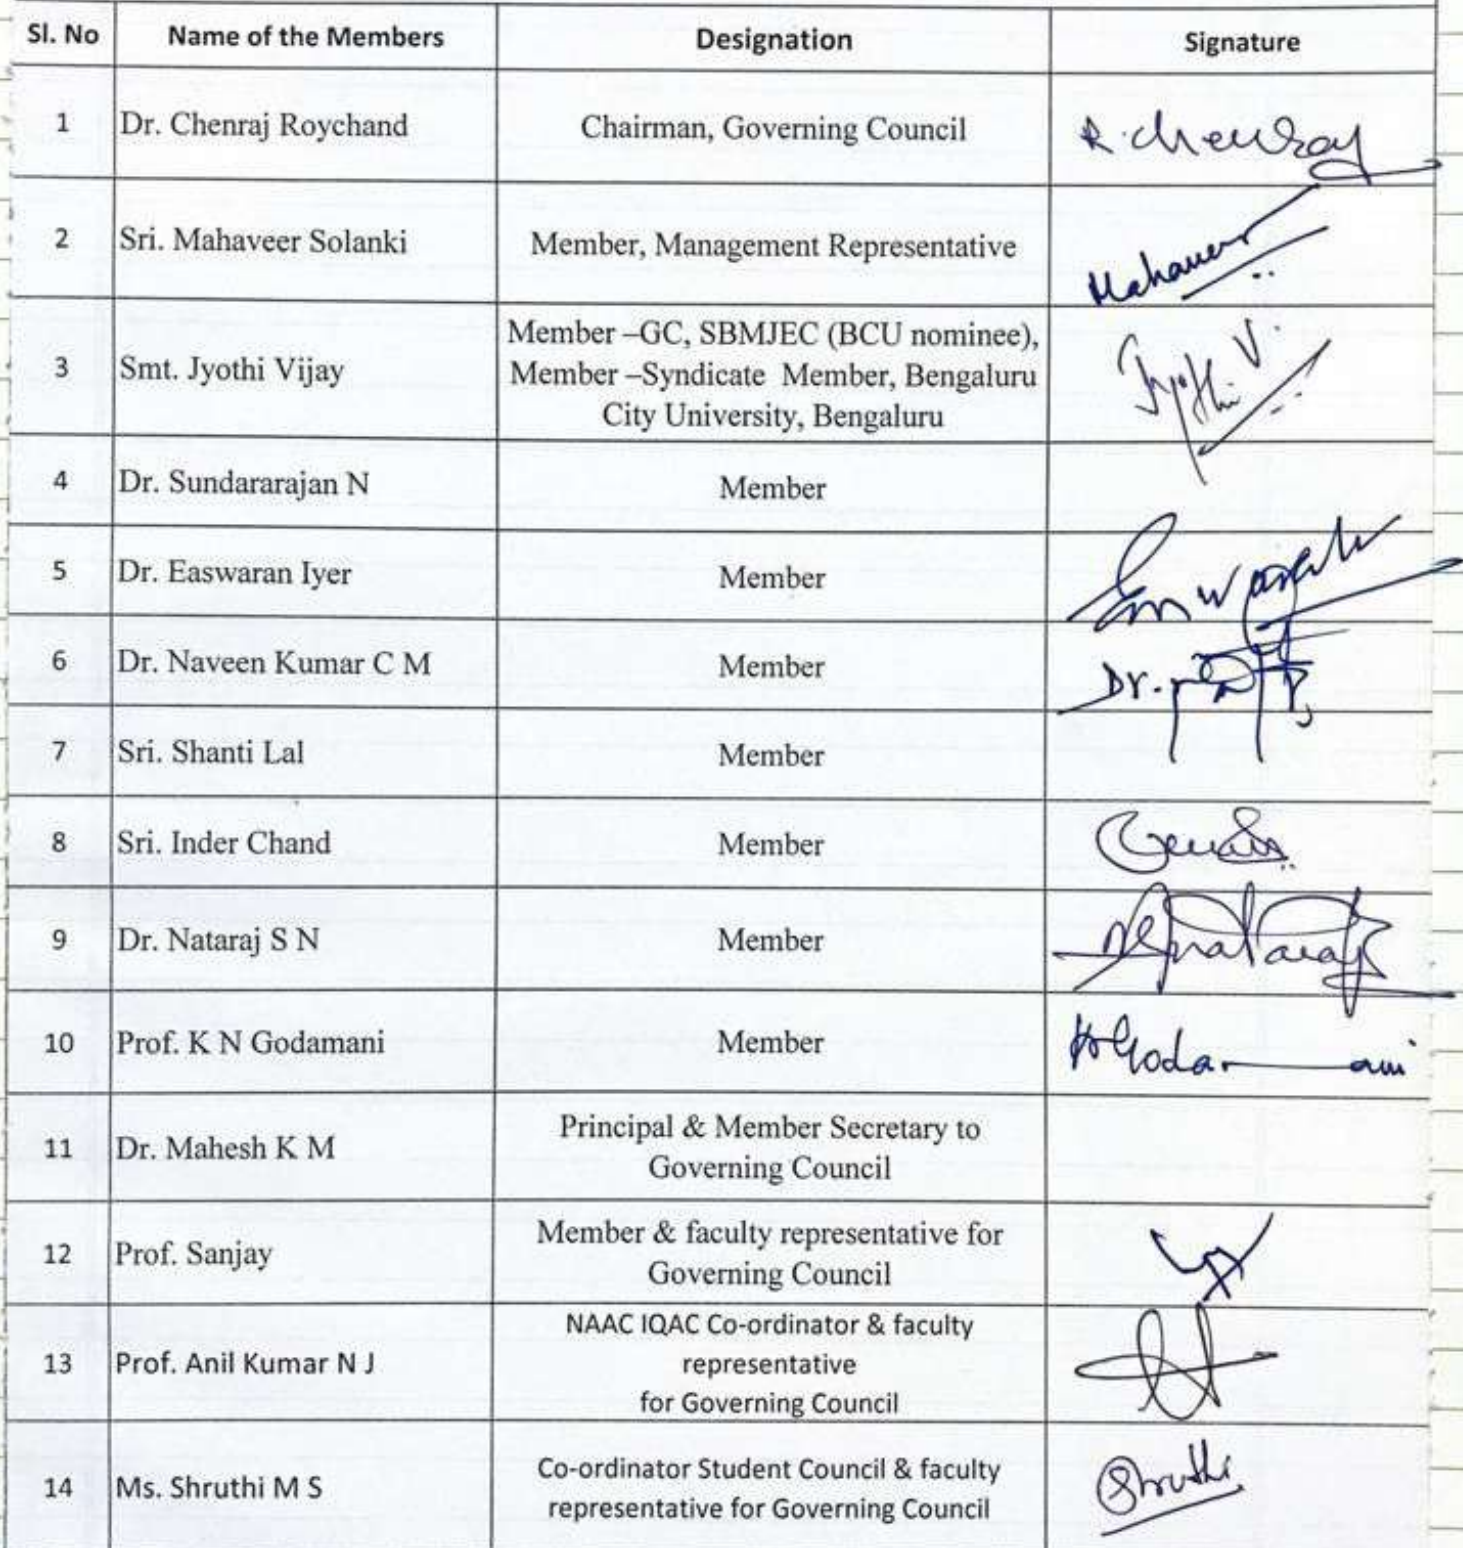 Sl. No Name of the Members Designation Signature
1 Dr. Chenraj Roychand Chairman, Governing Council R. Chenraj
2 Sri. Mahaveer Solanki Member, Management Representative Mahaveer
3 Smt. Jyothi Vijay Member –GC, SBMJEC (BCU nominee),
Member –Syndicate Member, Bengaluru
City University, Bengaluru
Jyothi V.
4 Dr. Sundararajan N Member
5 Dr. Easwaran Iyer Member
6 Dr. Naveen Kumar C M Member Dr.
7 Sri. Shanti Lal Member
8 Sri. Inder Chand Member
9 Dr. Nataraj S N Member Nataraj
10 Prof. K N Godamani Member Godamani
11 Dr. Mahesh K M Principal & Member Secretary to
Governing Council
12 Prof. Sanjay Member & faculty representative for
Governing Council
13 Prof. Anil Kumar N J NAAC IQAC Co-ordinator & faculty
representative
for Governing Council
14 Ms. Shruthi M S Co-ordinator Student Council & faculty
representative for Governing Council
Shruthi